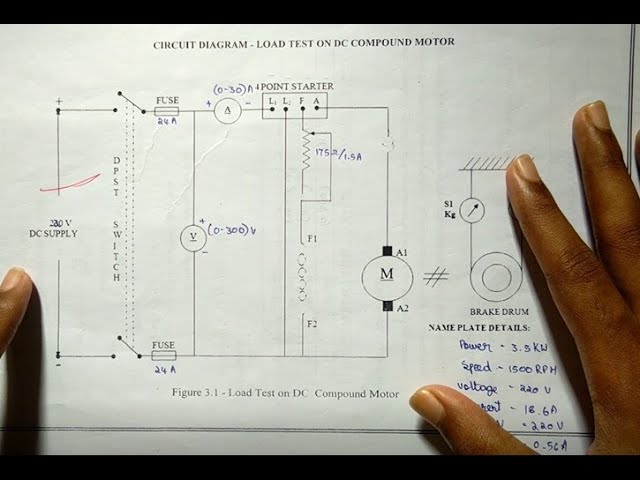 CIRCUIT DIAGRAM - LOAD TEST ON DC COMPOUND MOTOR
(0-30)A
4 POINT STARTER
FUSE
24 A
+ A -
L1 L2 F A
+
175Ω/1.5A
DPST SWITCH
230 V
DC SUPPLY
+
V
(0-300)V
-
S1
Kg
F1
A1
M
A2
F2
BRAKE DRUM
NAME PLATE DETAILS:
FUSE
24 A
-
Figure 3.1 - Load Test on DC Compound Motor
Power - 3.5 KW
Speed - 1500 RPM
Voltage - 220 V
- 18.6A
= 220 V
= 0.56A